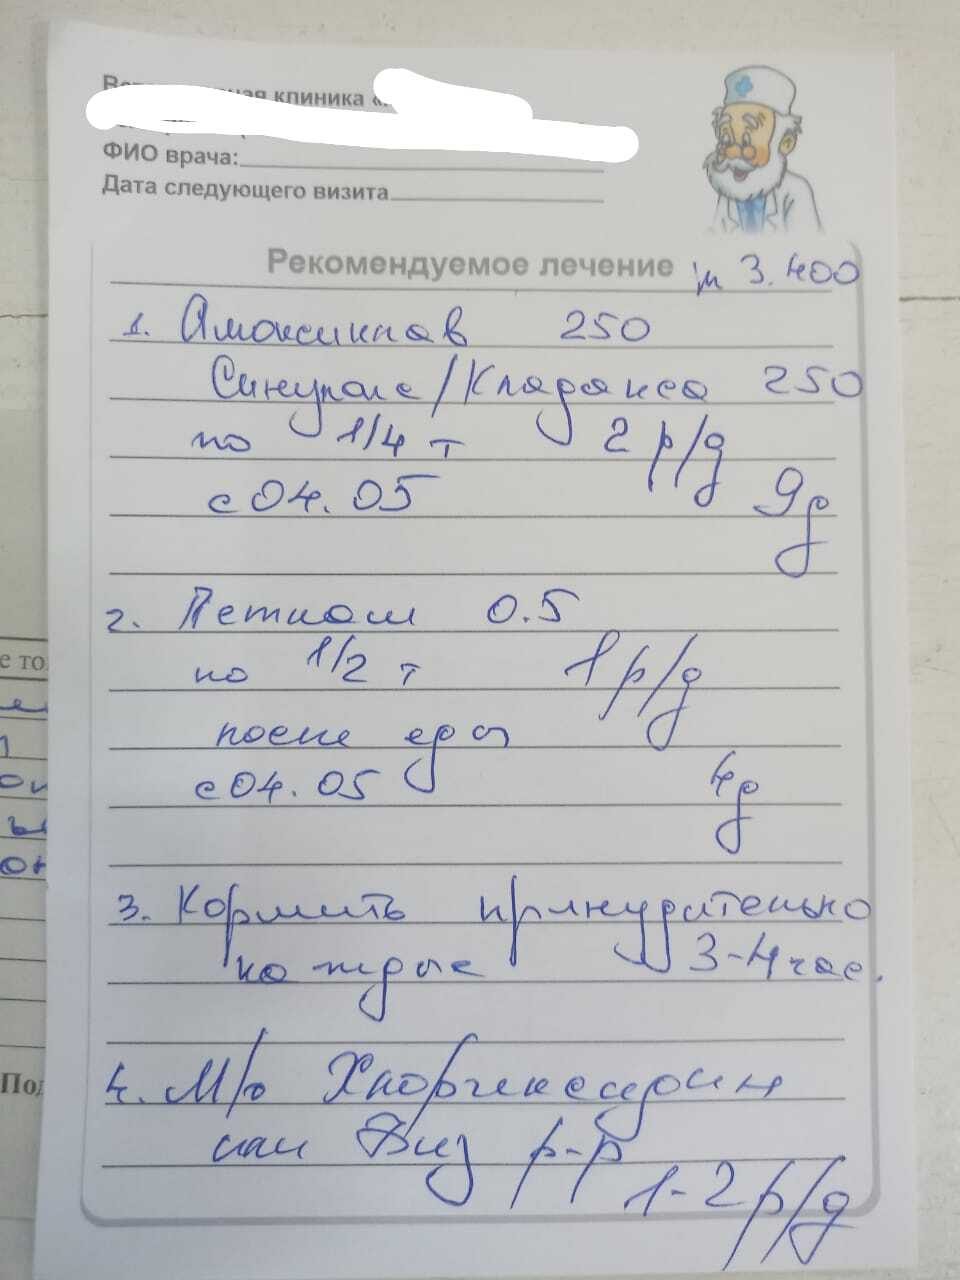 клиника
ФИО врача:
Дата следующего визита
Рекомендуемое лечение м 3.400
1. Амоксиклав 250
Синулокс/Кладакса 250
по 1/4 т 2 р/д
с 04.05 9д
2. Петкам 0.5
по 1/2 т 1 р/д
после еды
с 04.05 4д
3. Кормить принудительно
каждые 3-4 час.
4. М/о Хлоргексидин
или Диз р-р 1-2 р/д
е то
Под